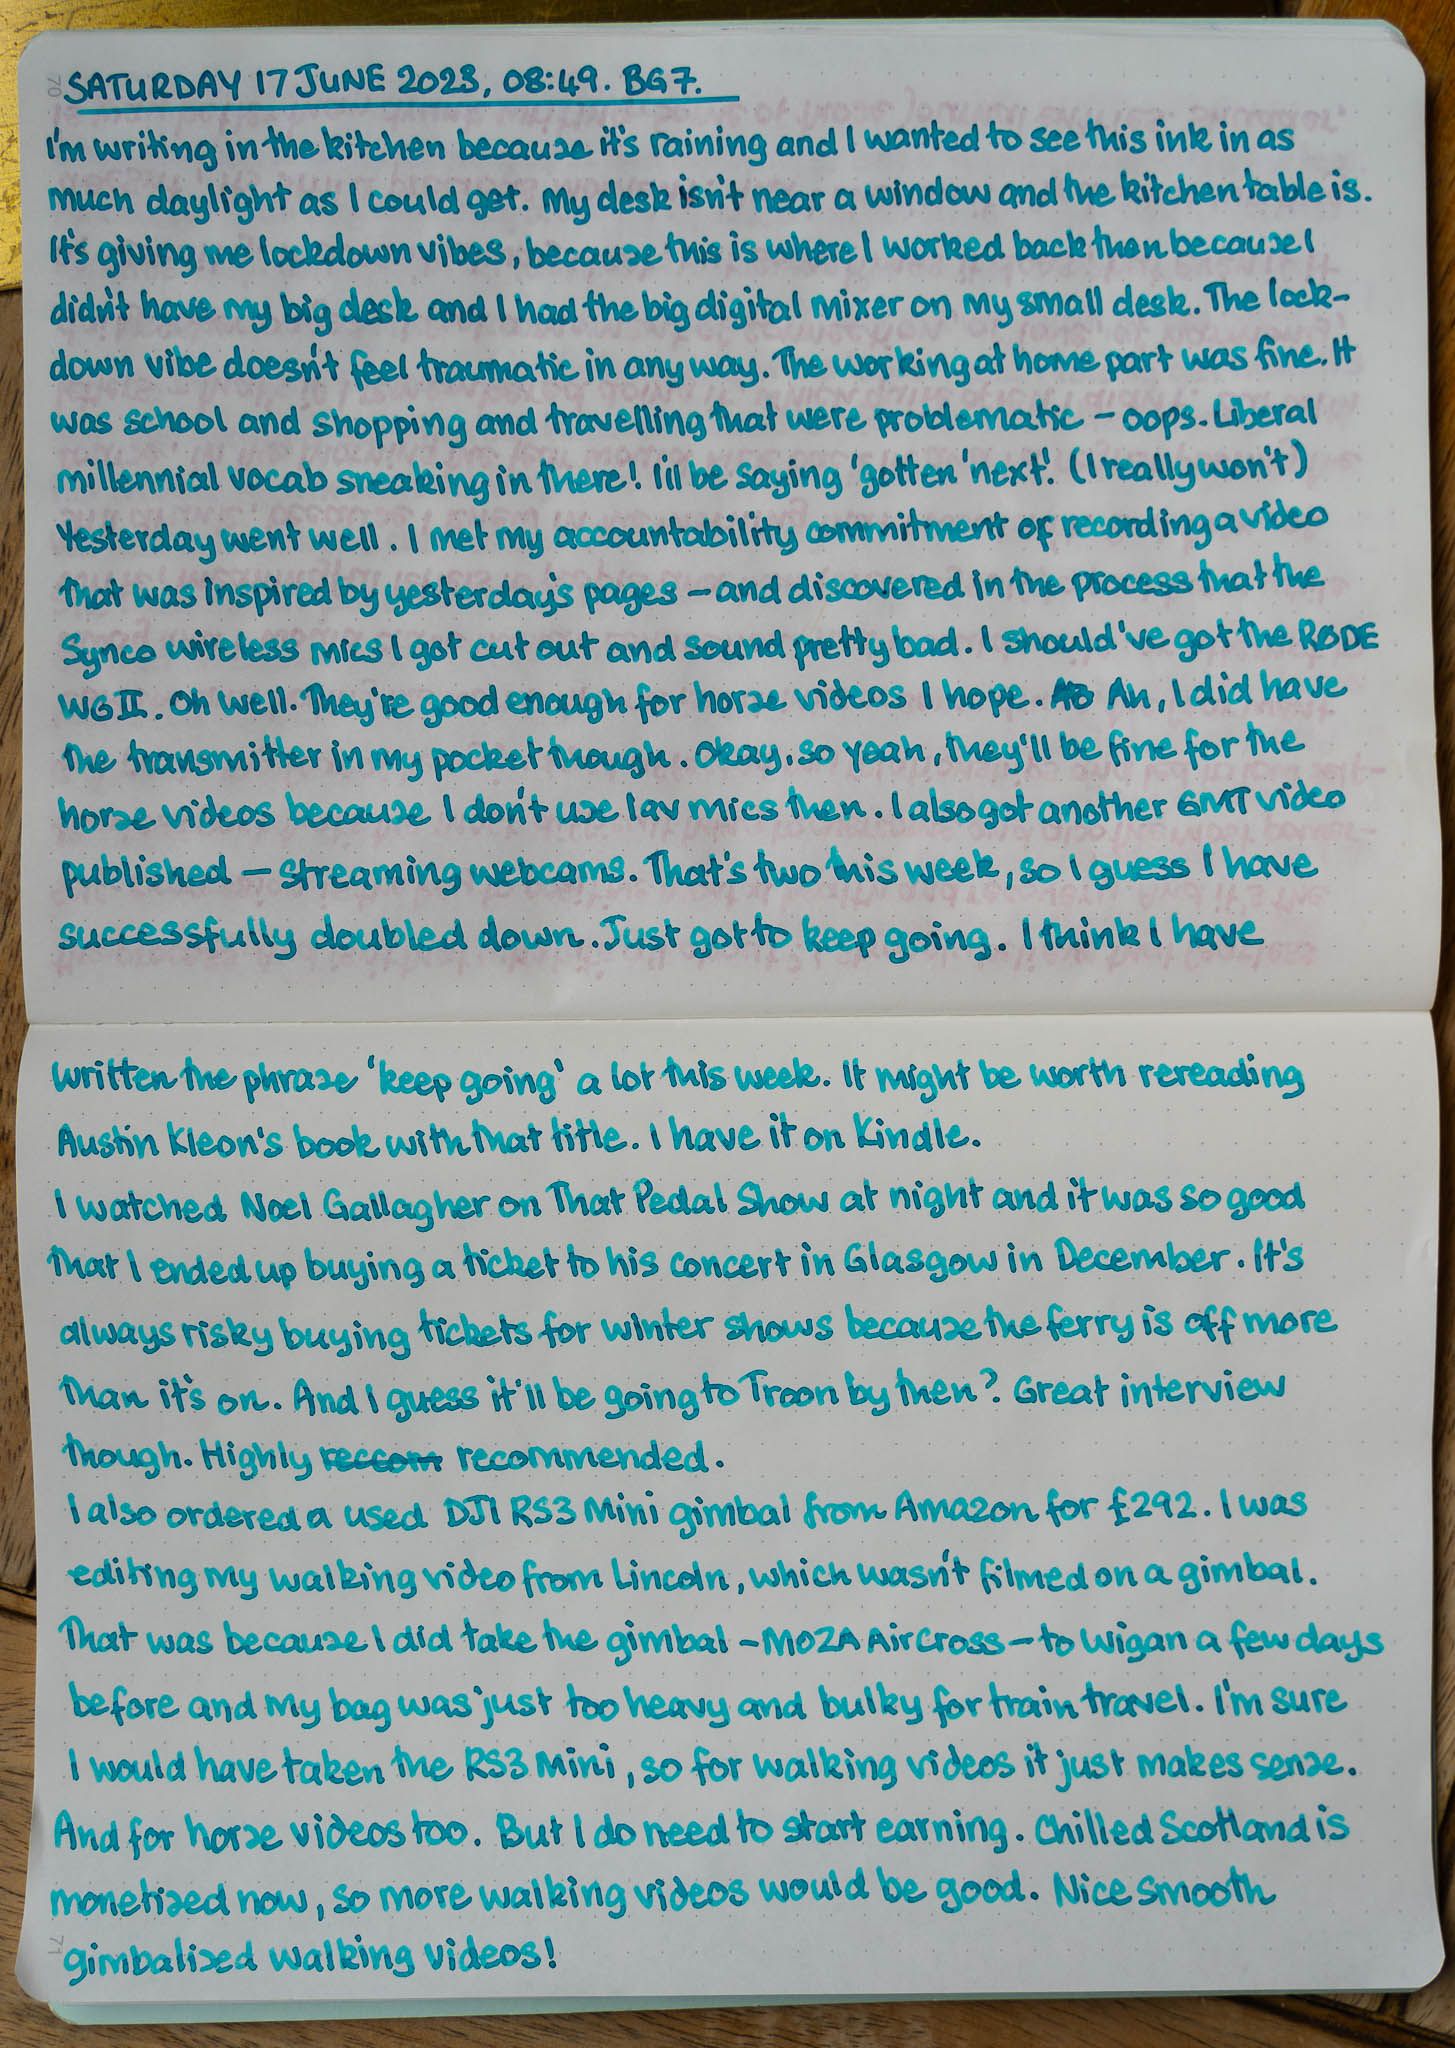 SATURDAY 17 JUNE 2023, 08:49. BG7.
I'm writing in the kitchen because it's raining and I wanted to see this ink in as
much daylight as I could get. My desk isn't near a window and the kitchen table is.
It's giving me lockdown vibes, because this is where I worked back then because I
didn't have my big desk and I had the big digital mixer on my small desk. The lock-
down vibe doesn't feel traumatic in any way. The working at home part was fine. It
was school and shopping and travelling that were problematic – oops. Liberal
millennial vocab sneaking in there! I'll be saying 'gotten' next'. (I really won't)
Yesterday went well. I met my accountability commitment of recording a video
that was inspired by yesterday's pages – and discovered in the process that the
Synco wireless mics I got cut out and sound pretty bad. I should've got the RØDE
WG II. Oh well. They're good enough for horse videos I hope. Ah, I did have
the transmitter in my pocket though. Okay, so yeah, they'll be fine for the
horse videos because I don't use lav mics then. I also got another GMT video
published – streaming webcams. That's two this week, so I guess I have
successfully doubled down. Just got to keep going. I think I have
written the phrase 'keep going' a lot this week. It might be worth rereading
Austin Kleon's book with that title. I have it on Kindle.
I watched Noel Gallagher on That Pedal Show at night and it was so good
that I ended up buying a ticket to his concert in Glasgow in December. It's
always risky buying tickets for winter shows because the ferry is off more
than it's on. And I guess it'll be going to Troon by then? Great interview
though. Highly reccom recommended.
I also ordered a used DJI RS3 Mini gimbal from Amazon for £292. I was
editing my walking video from Lincoln, which wasn't filmed on a gimbal.
That was because I did take the gimbal – MOZA AirCross – to Wigan a few days
before and my bag was just too heavy and bulky for train travel. I'm sure
I would have taken the RS3 Mini, so for walking videos it just makes sense.
And for horse videos too. But I do need to start earning. Chilled Scotland is
monetised now, so more walking videos would be good. Nice smooth
gimbalised walking videos!
70
71